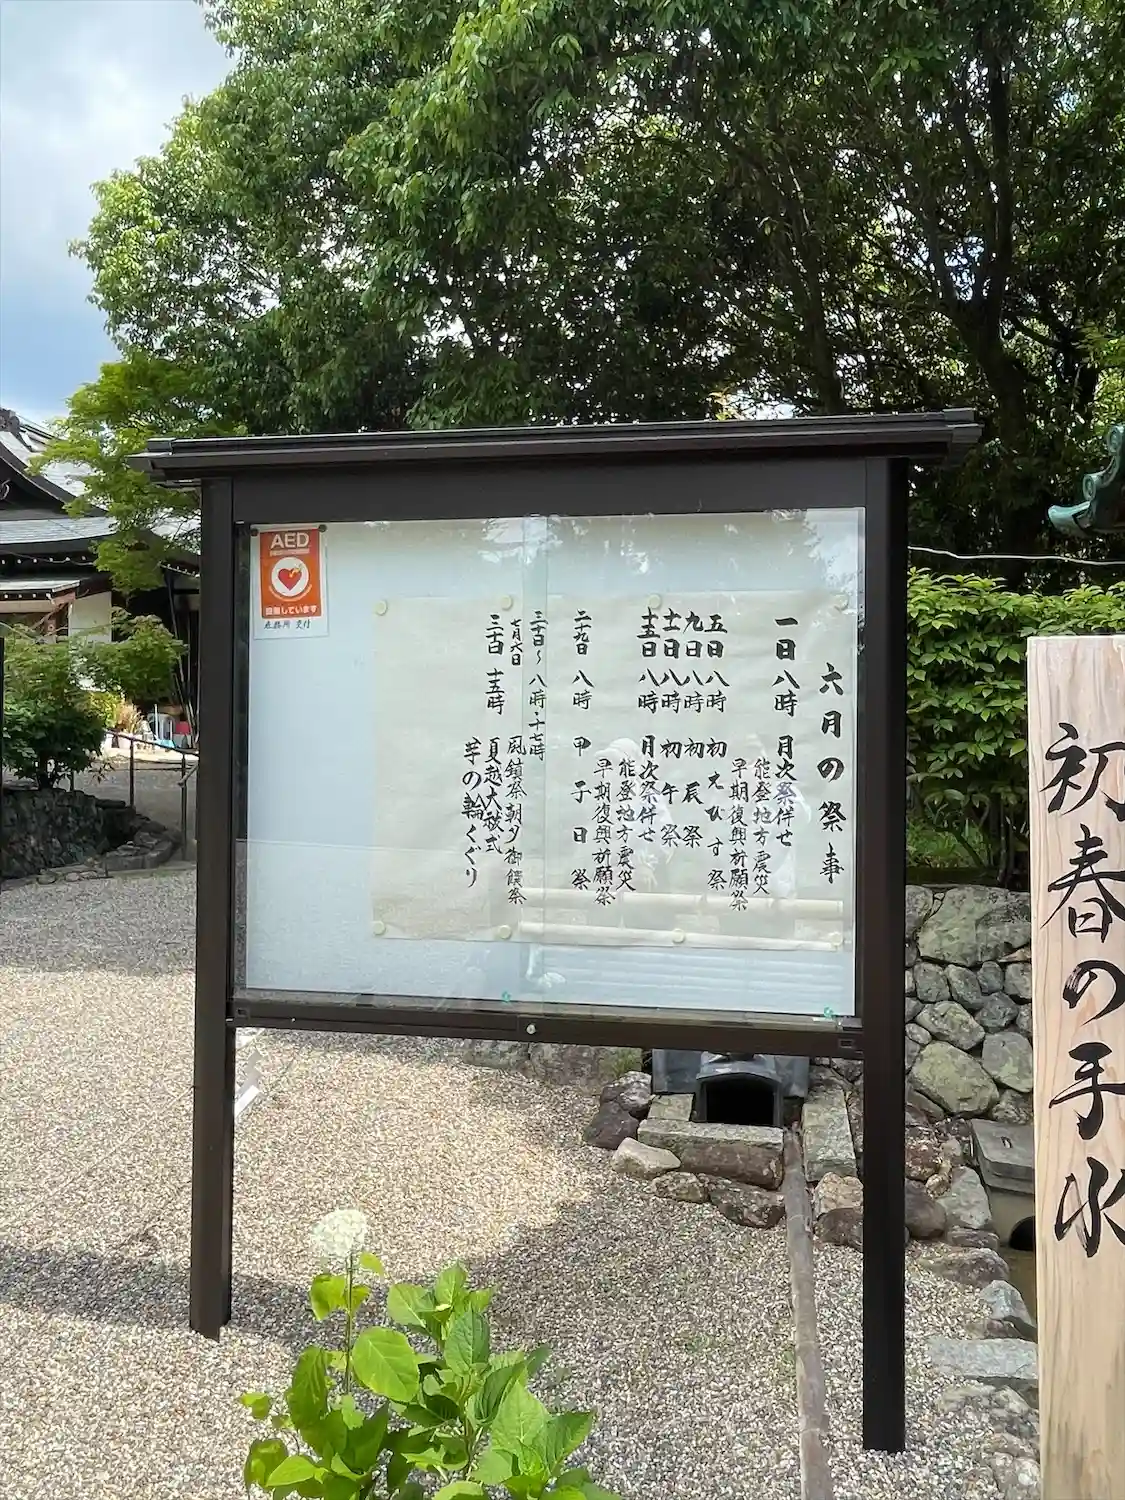 六月の祭事
一日 八時 月次祭併せ
能登地方震災
早期復興祈願祭
五日 八時 初えびす祭
九日 八時 初辰祭
十一日 八時 初午祭
十五日 八時 月次祭併せ
能登地方震災
早期復興祈願祭
二十九日 八時 甲子日祭
三十日〜 八時・十七時
七月六日 風鎮祭朝夕御饌祭
三十日 十五時 夏越大祓式
芽の輪くぐり
AED
設置しています
社務所 受付
初春の手水